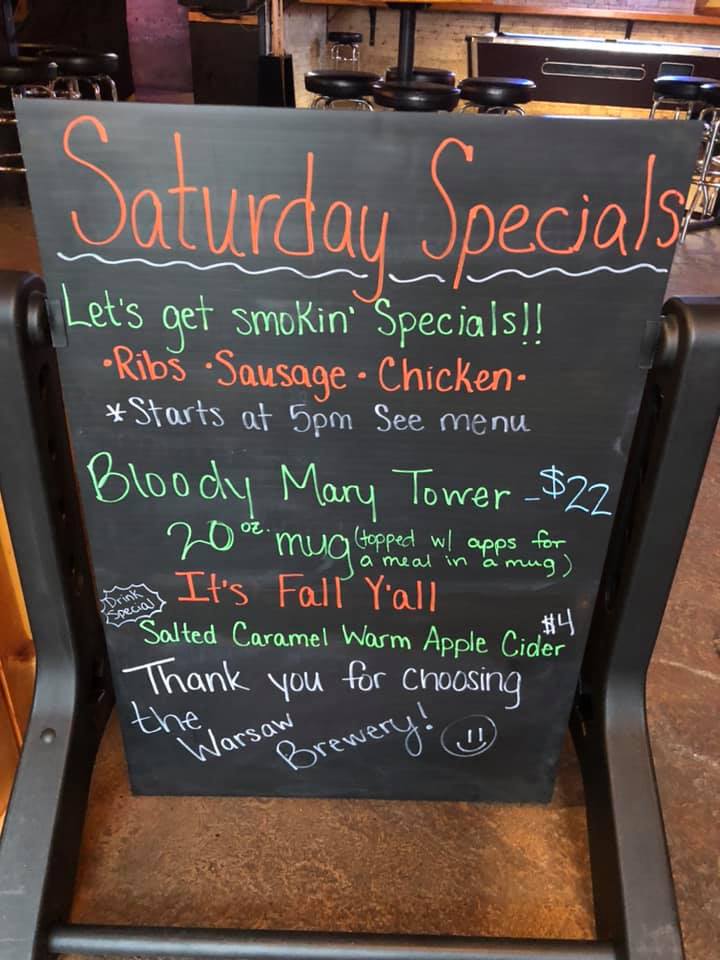 Saturday Specials
Let's get smokin' Specials!!
•Ribs •Sausage • Chicken•
*Starts at 5pm See menu
Bloody Mary Tower - $22
20 oz. mug (topped w/ apps for
a meal in a mug)
It's Fall Y'all
Drink
Special
$4
Salted Caramel Warm Apple Cider
Thank you for choosing
the
Warsaw
Brewery!